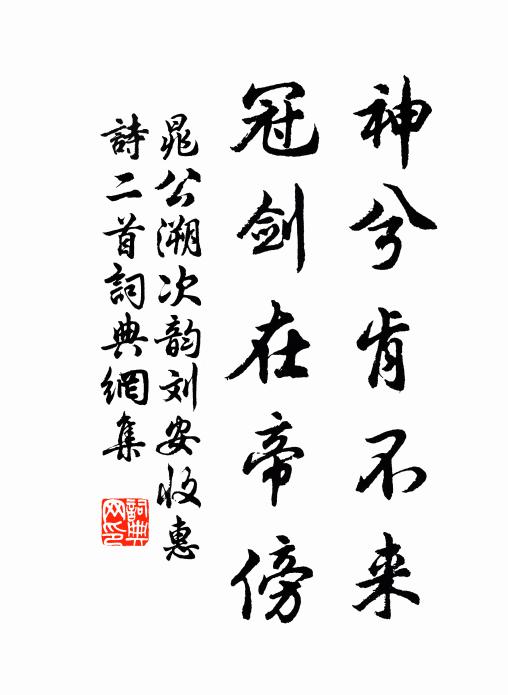 神兮肯不来
冠剑在帝傍
晁公溯次韵刘安收惠
詩二首詞典網集
詞典
网印